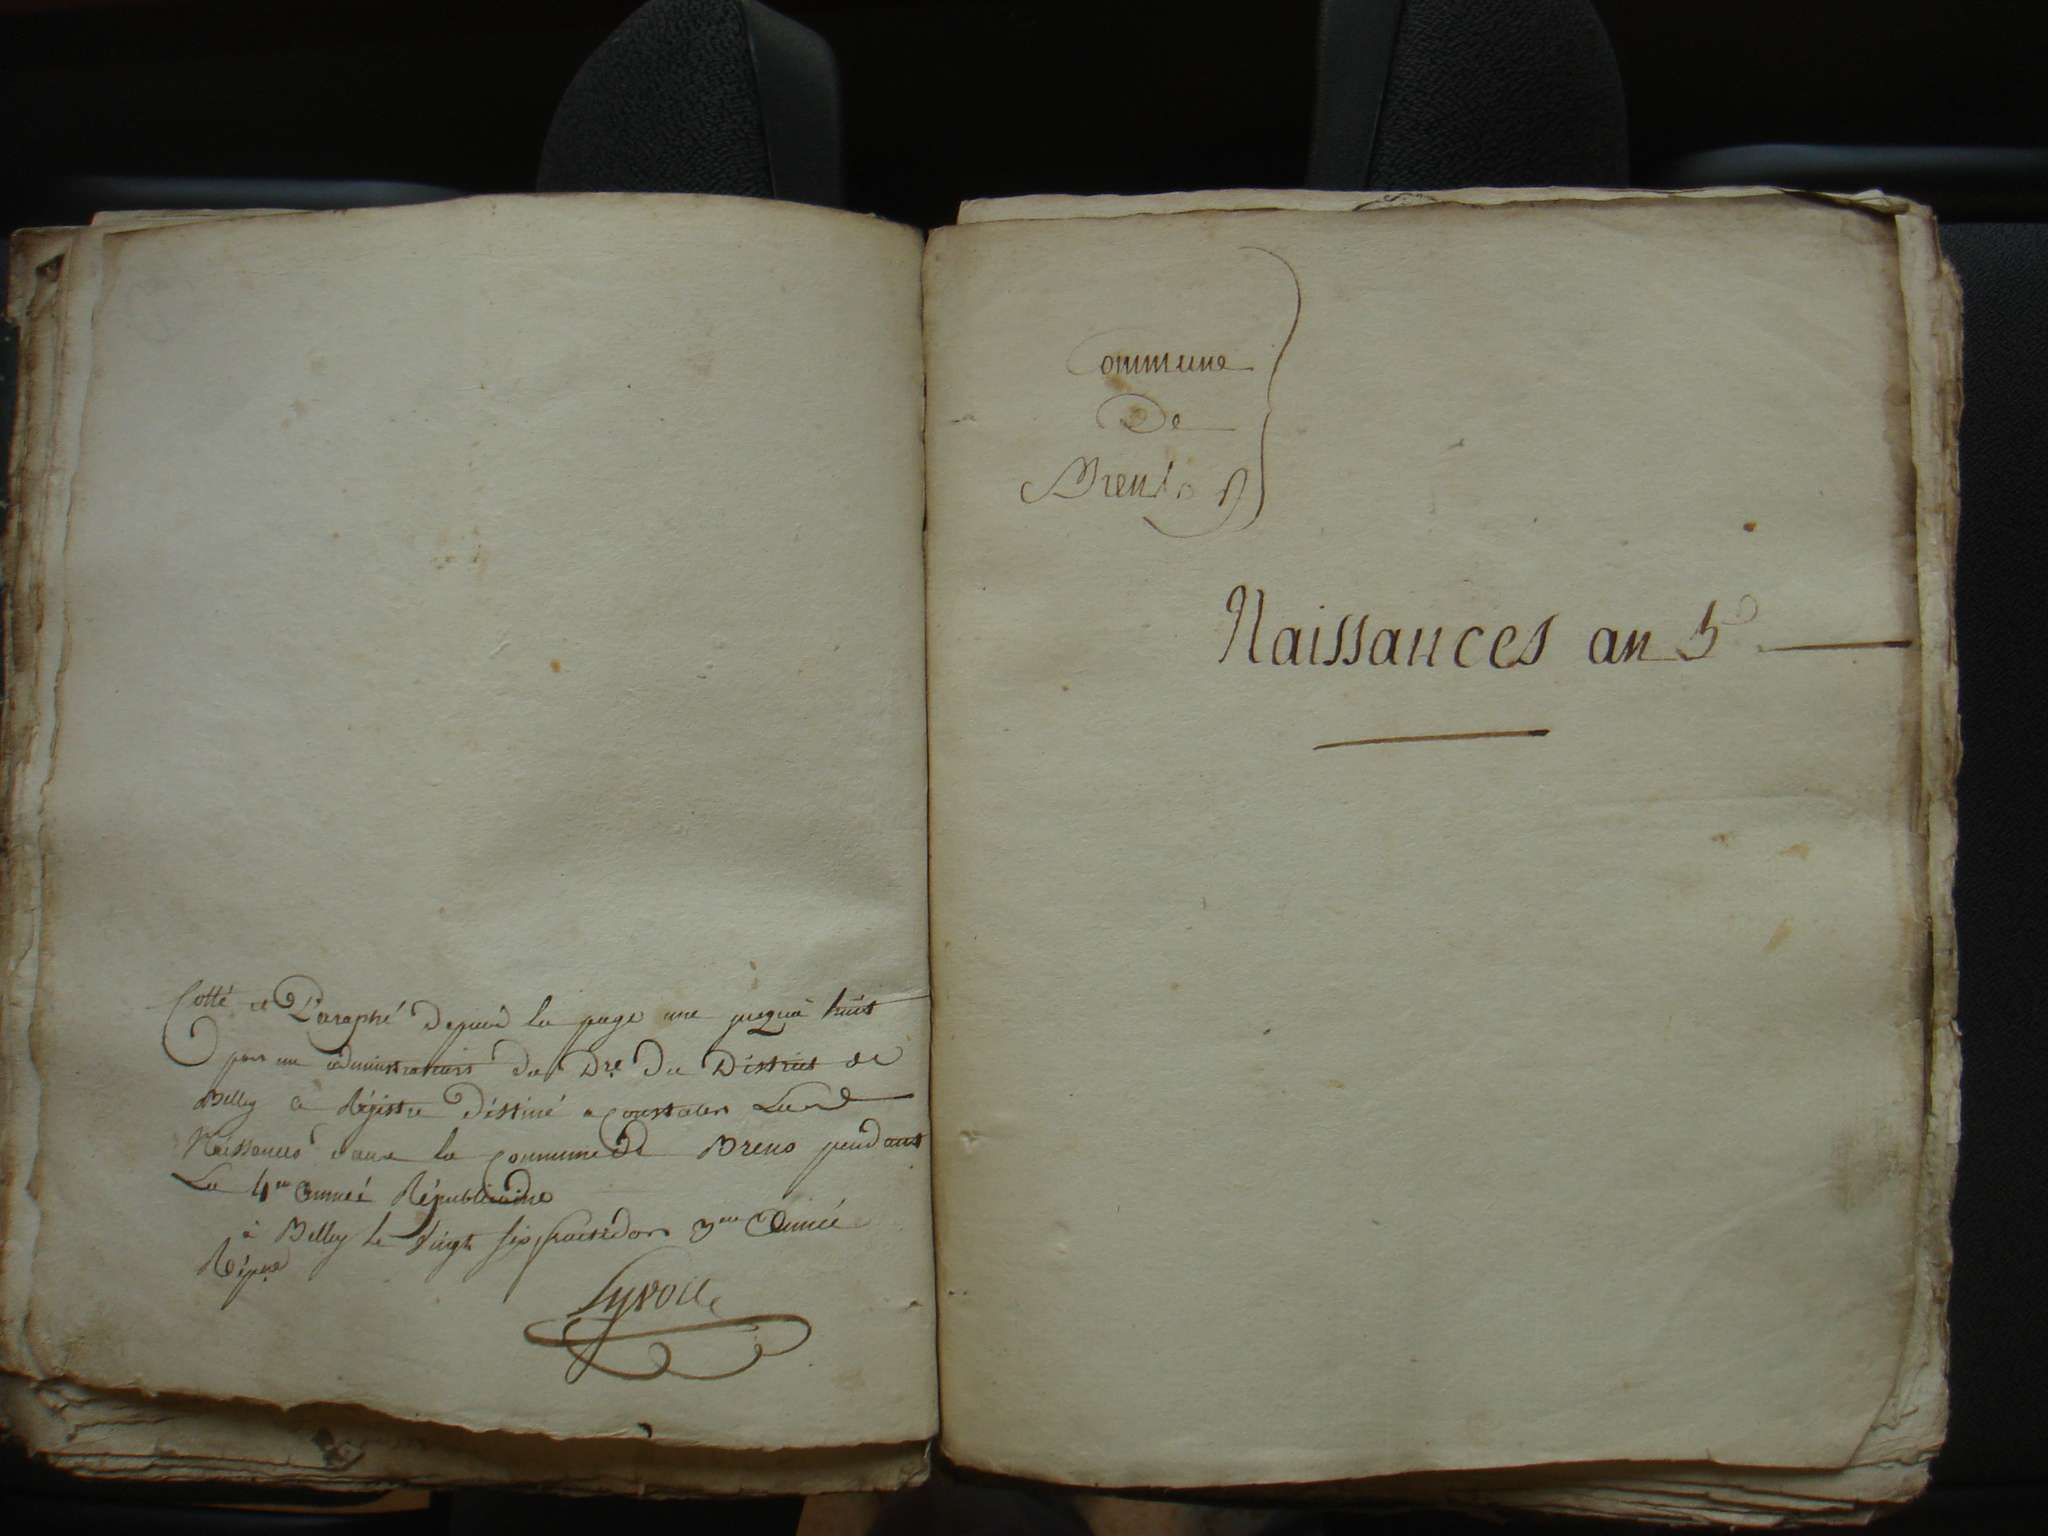 Cotté et Paraphé depuis la page une jusqua huit
par un administrateurs du Dre. du District de
Belley ce Régistre déstiné a Constater Les
Naissances dans la Commune de Breno pendant
La 4me année Républicaine
à Belley le vingt six fructidor 3me année
Répne
Commune
De
Brenod
Naissances an 5e